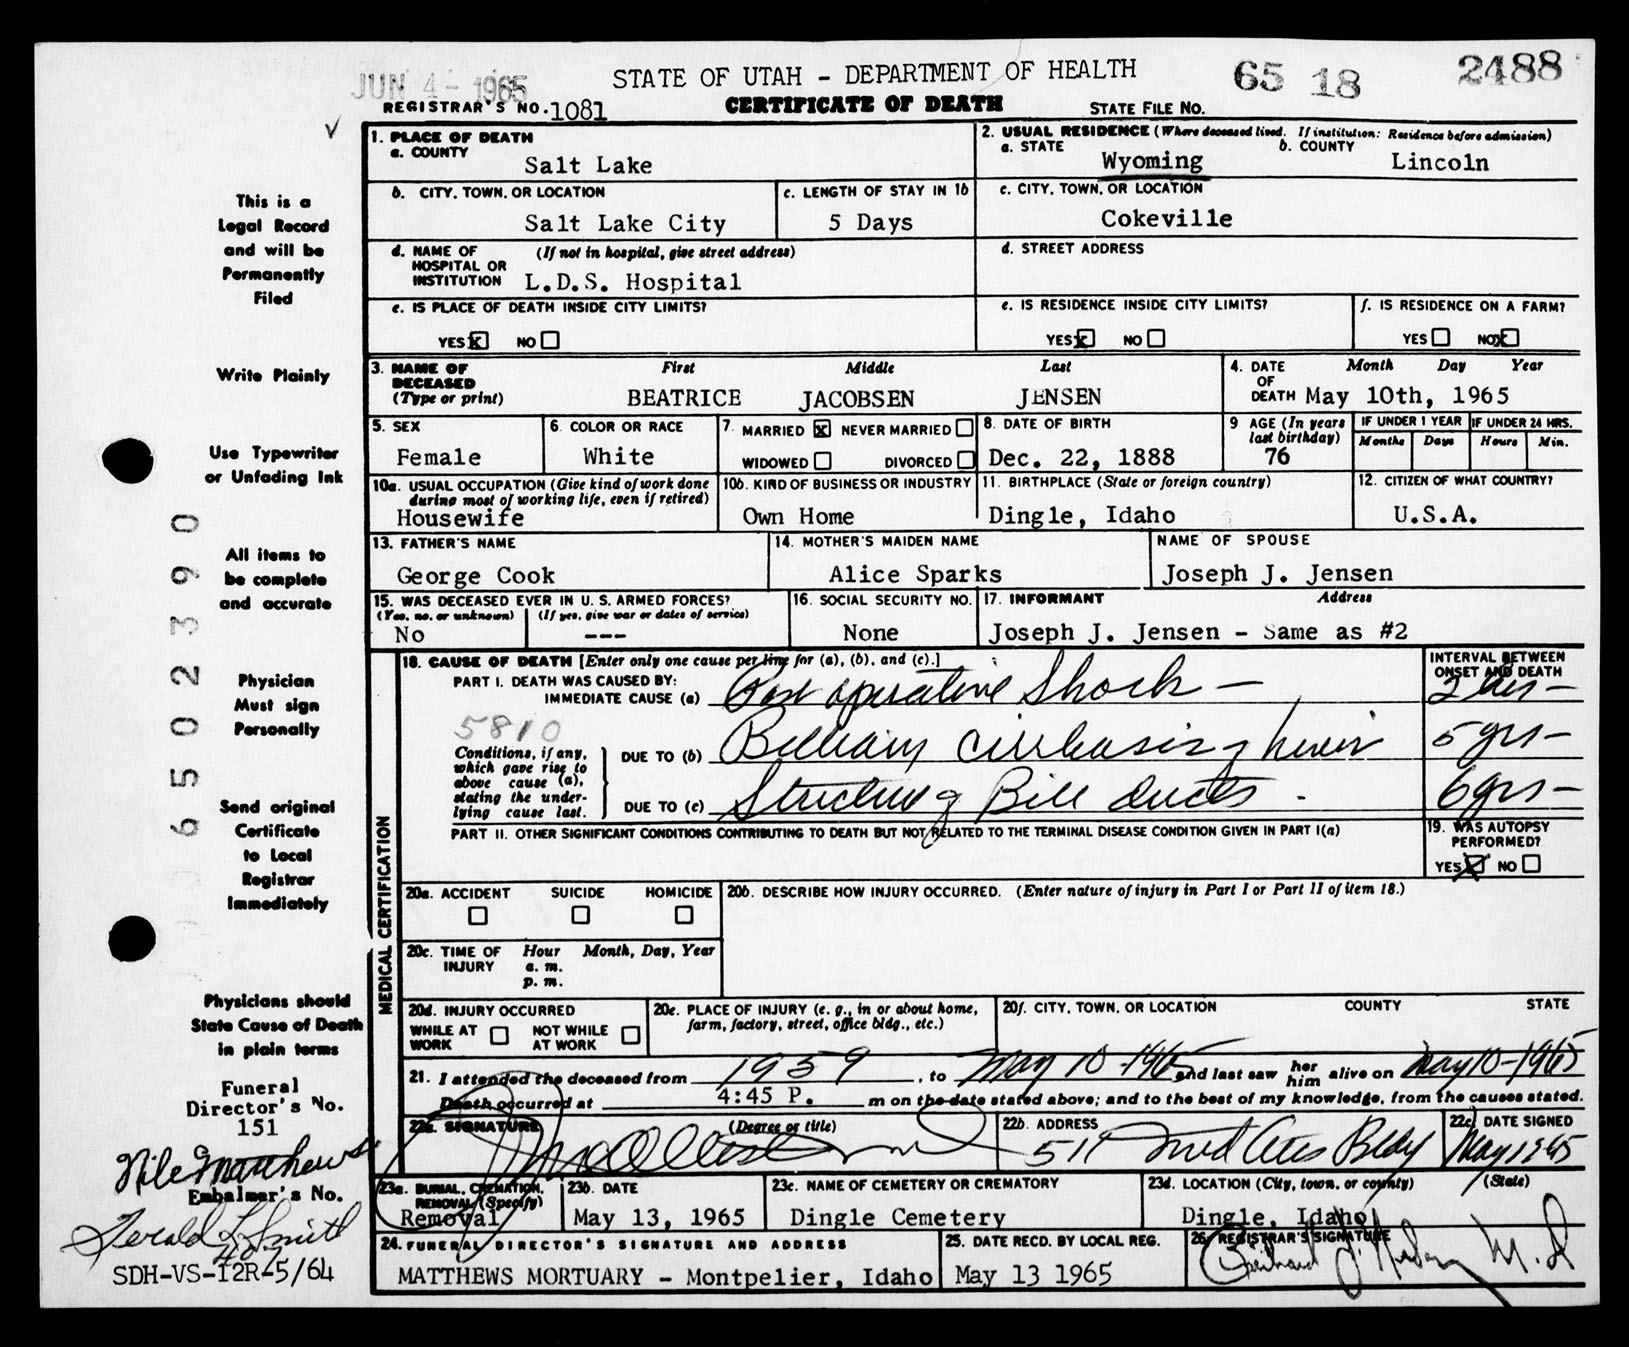 JUN 4 - 1965
STATE OF UTAH - DEPARTMENT OF HEALTH
65 18 2488
REGISTRAR'S NO. 1081
CERTIFICATE OF DEATH
STATE FILE NO.
1. PLACE OF DEATH
a. COUNTY
Salt Lake
2. USUAL RESIDENCE (Where deceased lived. If institution: Residence before admission)
a. STATE Wyoming
b. COUNTY Lincoln
b. CITY, TOWN, OR LOCATION
Salt Lake City
c. LENGTH OF STAY IN 1b
5 Days
c. CITY, TOWN, OR LOCATION
Cokeville
d. NAME OF HOSPITAL OR INSTITUTION (If not in hospital, give street address)
L.D.S. Hospital
d. STREET ADDRESS
e. IS PLACE OF DEATH INSIDE CITY LIMITS?
YES x NO
e. IS RESIDENCE INSIDE CITY LIMITS?
YES x NO
f. IS RESIDENCE ON A FARM?
YES NO x
3. NAME OF DECEASED (Type or print)
First Middle Last
BEATRICE JACOBSEN JENSEN
4. DATE OF DEATH
Month Day Year
May 10th, 1965
5. SEX
Female
6. COLOR OR RACE
White
7. MARRIED x NEVER MARRIED
WIDOWED DIVORCED
8. DATE OF BIRTH
Dec. 22, 1888
9 AGE (In years last birthday)
76
IF UNDER 1 YEAR
Months Days
IF UNDER 24 HRS.
Hours Min.
10a. USUAL OCCUPATION (Give kind of work done during most of working life, even if retired)
Housewife
10b. KIND OF BUSINESS OR INDUSTRY
Own Home
11. BIRTHPLACE (State or foreign country)
Dingle, Idaho
12. CITIZEN OF WHAT COUNTRY?
U.S.A.
13. FATHER'S NAME
George Cook
14. MOTHER'S MAIDEN NAME
Alice Sparks
NAME OF SPOUSE
Joseph J. Jensen
15. WAS DECEASED EVER IN U. S. ARMED FORCES?
(Yes, no, or unknown) (If yes, give war or dates of service)
No ---
16. SOCIAL SECURITY NO.
None
17. INFORMANT Address
Joseph J. Jensen - Same as #2
MEDICAL CERTIFICATION
18. CAUSE OF DEATH [Enter only one cause per line for (a), (b), and (c).]
INTERVAL BETWEEN ONSET AND DEATH
PART I. DEATH WAS CAUSED BY:
IMMEDIATE CAUSE (a) Post operative Shock -
5810
Conditions, if any, which gave rise to above cause (a), stating the underlying cause last.
DUE TO (b) Billiary cirrhosis of liver 5 yrs -
DUE TO (c) Stricture of Bile ducts - 6 yrs -
PART II. OTHER SIGNIFICANT CONDITIONS CONTRIBUTING TO DEATH BUT NOT RELATED TO THE TERMINAL DISEASE CONDITION GIVEN IN PART I(a)
19. WAS AUTOPSY PERFORMED?
YES X NO
20a. ACCIDENT SUICIDE HOMICIDE
20b. DESCRIBE HOW INJURY OCCURRED. (Enter nature of injury in Part I or Part II of item 18.)
20c. TIME OF INJURY
Hour Month, Day, Year
a. m.
p. m.
20d. INJURY OCCURRED
WHILE AT WORK NOT WHILE AT WORK
20e. PLACE OF INJURY (e. g., in or about home, farm, factory, street, office bldg., etc.)
20f. CITY, TOWN, OR LOCATION COUNTY STATE
21. I attended the deceased from 1959, to May 10 - 1965 and last saw her him alive on May 10 - 1965
Death occurred at 4:45 P. m on the date stated above; and to the best of my knowledge, from the causes stated.
22a. SIGNATURE (Degree or title)
22b. ADDRESS
511 Med Arts Bldg
22c. DATE SIGNED
23a. BURIAL, CREMATION, REMOVAL (Specify)
Removal
23b. DATE
May 13, 1965
23c. NAME OF CEMETERY OR CREMATORY
Dingle Cemetery
23d. LOCATION (City, town, or county) (State)
Dingle, Idaho
24. FUNERAL DIRECTOR'S SIGNATURE AND ADDRESS
MATTHEWS MORTUARY - Montpelier, Idaho
25. DATE RECD. BY LOCAL REG.
May 13 1965
26. REGISTRAR'S SIGNATURE
M.D
This is a
Legal Record
and will be
Permanently
Filed
Write Plainly
Use Typewriter
or Unfading Ink
All items to
be complete
and accurate
Physician
Must sign
Personally
Send original
Certificate
to Local
Registrar
Immediately
Physicians should
State Cause of Death
in plain terms
Funeral
Director's No.
151
Nile Matthews
Embalmer's No.
Gerald L Smith
407
SDH-VS-12R-5/64
6502390